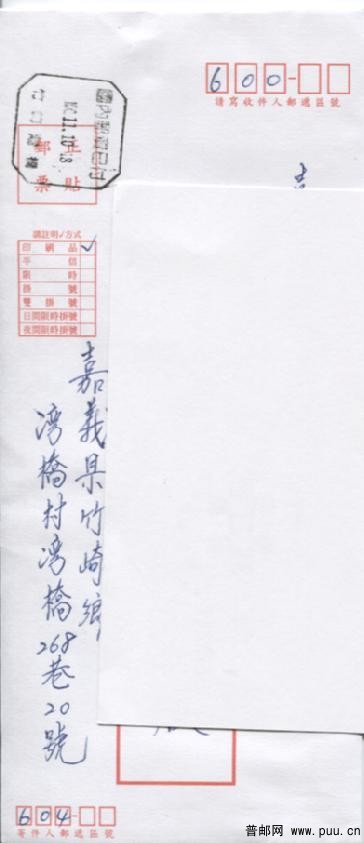 600-
请寫收件人郵遞區號
國內郵資已付
正貼
郵票
請註明✓方式
印刷品 ✓
平信
限時
掛號
雙掛號
日間限時掛號
夜間限時掛號
嘉義県竹崎鄉
湾橋村湾橋268巷20號
604-
寄件人郵遞區號
普邮网 www.puu.cn